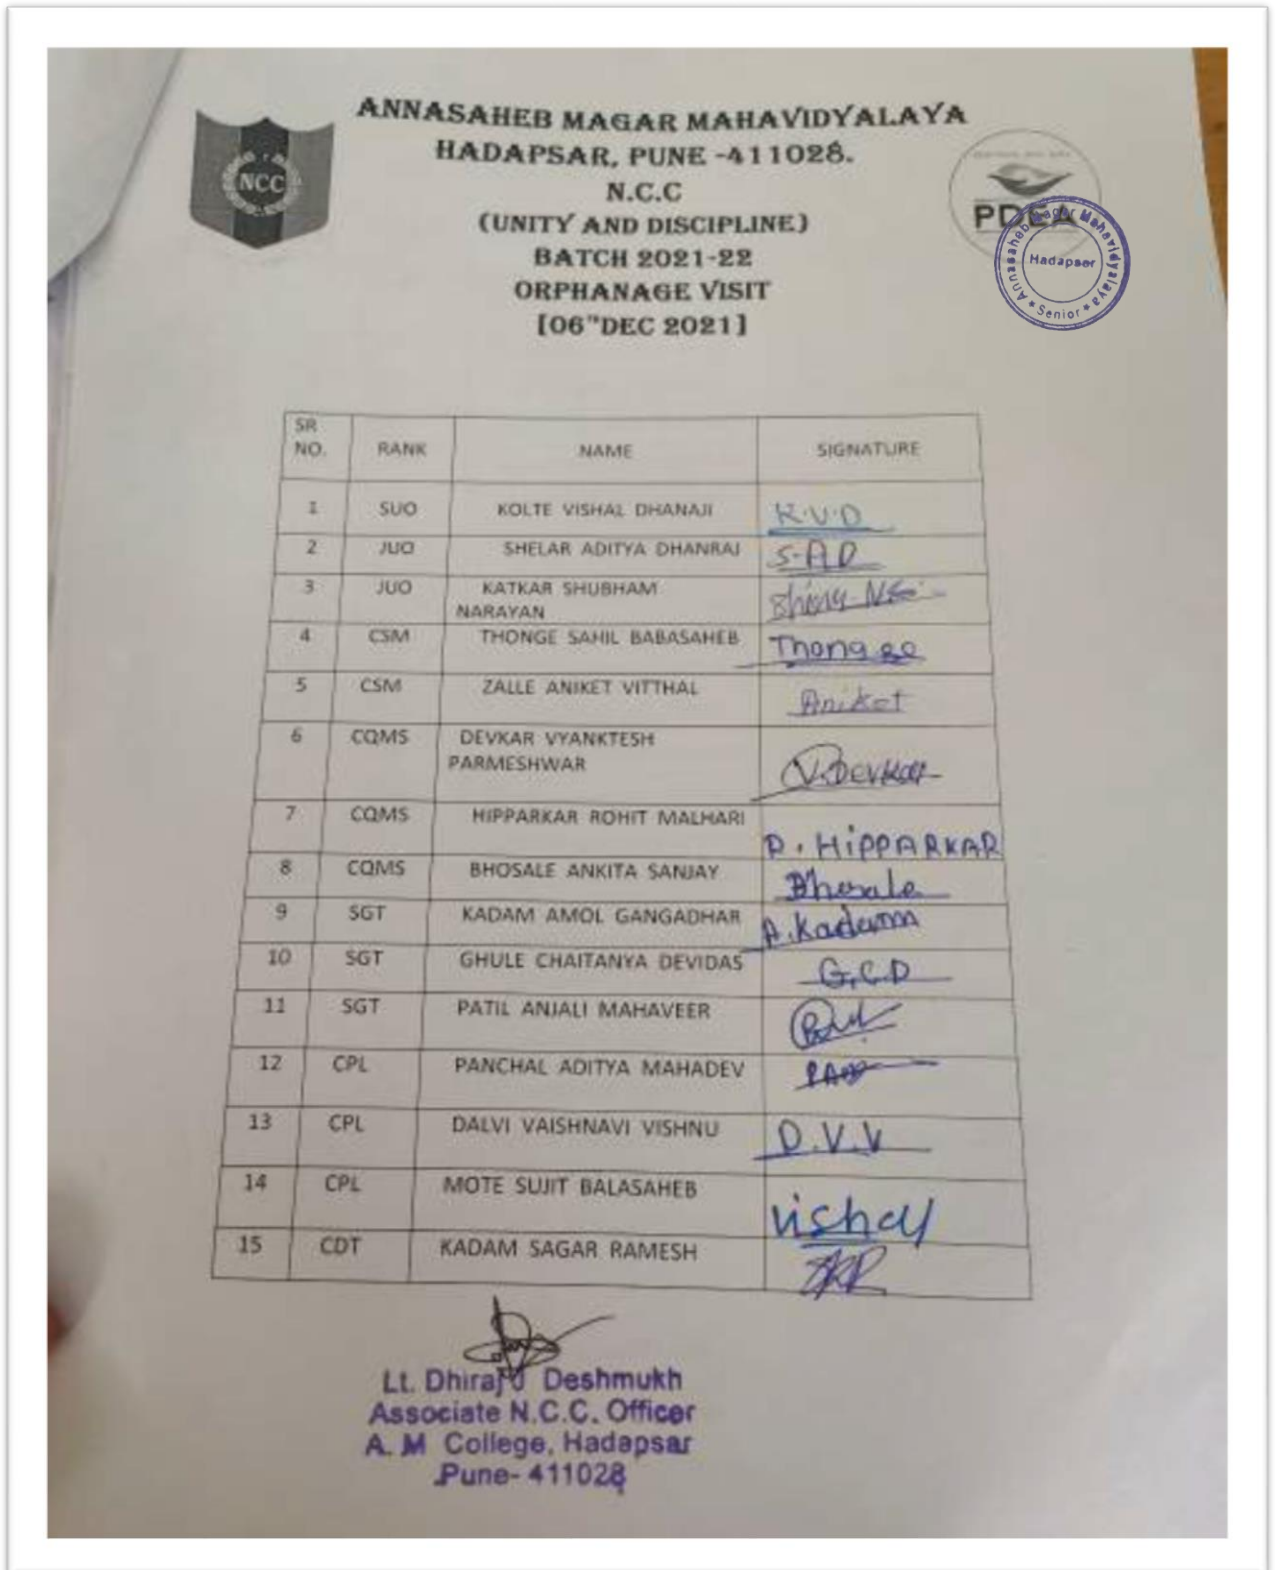 ANNASAHEB MAGAR MAHAVIDYALAYA
HADAPSAR, PUNE -411028.
N.C.C
(UNITY AND DISCIPLINE)
BATCH 2021-22
ORPHANAGE VISIT
[06THDEC 2021]
NCC
PDEA
Annasaheb Magar Mahavidyalaya
Hadapser
★ Senior ★
SR NO. RANK NAME SIGNATURE
1 SUO KOLTE VISHAL DHANAJI K.V.D
2 JUO SHELAR ADITYA DHANRAJ S.A.D
3 JUO KATKAR SHUBHAM
NARAYAN
4 CSM THONGE SAHIL BABASAHEB Thongee
5 CSM ZALLE ANIKET VITTHAL Aniket
6 CQMS DEVKAR VYANKTESH
PARMESHWAR V.Devkar
7 CQMS HIPPARKAR ROHIT MALHARI R. HiPPARKAR
8 CQMS BHOSALE ANKITA SANJAY Bhosale
9 SGT KADAM AMOL GANGADHAR A.Kadam
10 SGT GHULE CHAITANYA DEVIDAS G.C.D
11 SGT PATIL ANJALI MAHAVEER
12 CPL PANCHAL ADITYA MAHADEV
13 CPL DALVI VAISHNAVI VISHNU D.V.V
14 CPL MOTE SUJIT BALASAHEB vishal
15 CDT KADAM SAGAR RAMESH SKR
Lt. Dhiraj Deshmukh
Associate N.C.C. Officer
A. M College, Hadapsar
Pune- 411028